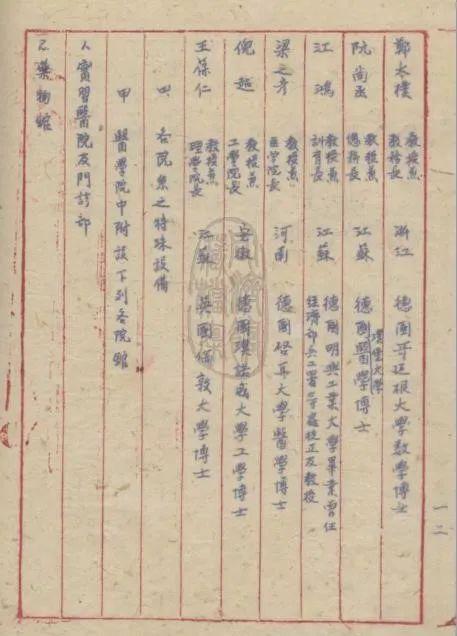 鄭太樸 教授兼教務長 浙江 德國哥廷根大學數學博士
阮尚丞 教授兼總務長 江蘇 德國漢堡大學醫學博士
江鴻 教授兼訓育長 江蘇 德國明興工業大學畢業曾任經濟部兵工署 處技正及教授
梁之彥 教授兼医学院長 河南 德國 大學醫學博士
倪超 教授兼工學院長 安徽 德國漢諾威大學工學博士
王葆仁 教授兼理學院長 江蘇 英國倫敦大學博士
四 各院系之特殊設備
甲 醫學院中附設下列各院館
人 實習醫院及門診部
乙 藥物館
一二